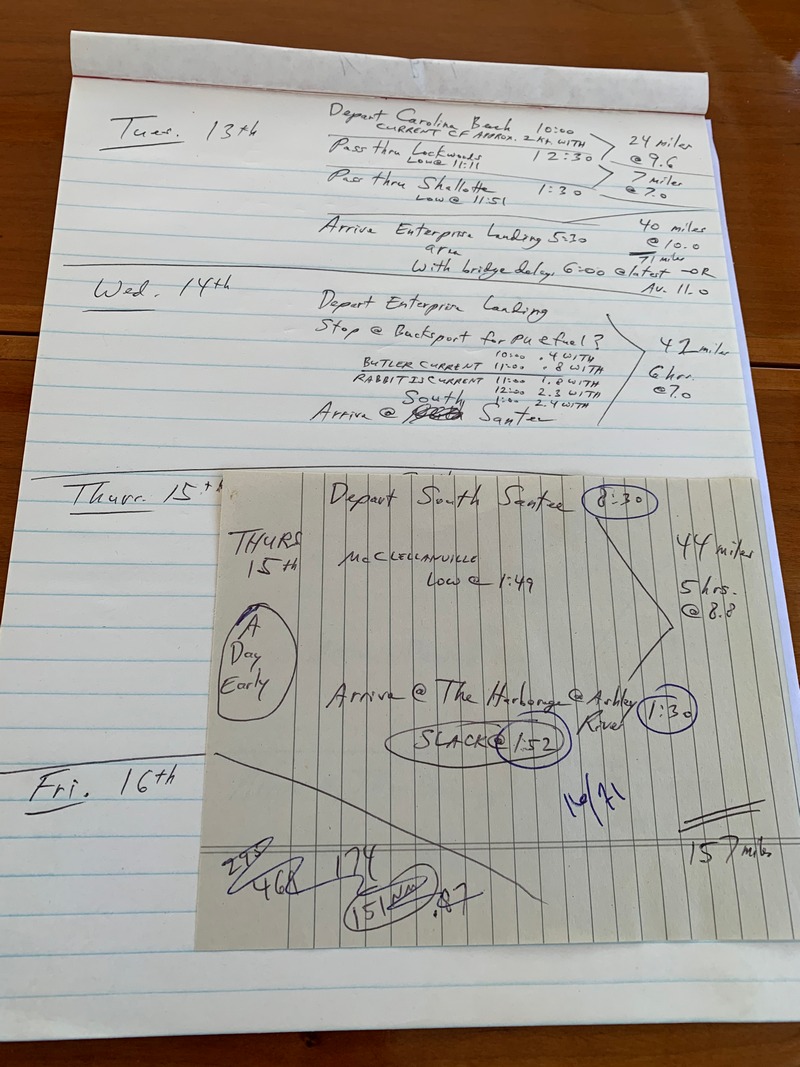 Tues. 13th
Depart Carolina Beach 10:00
CURRENT CF APPROX. 2 Kt. WITH
24 miles
@ 9.6
Pass thru Lockwoods 12:30
LOW @ 11:11
7 miles
@ 7.0
Pass thru Shallotte 1:30
LOW @ 11:51
Arrive Enterprise Landing 5:30
40 miles
@ 10.0
71 miles
With bridge delays 6:00 @ latest - OR
Av. 11.0
Wed. 14th
Depart Enterprise Landing
Stop @ Bucksport for PU & fuel?
10:00 .4 WITH
BUTLER CURRENT 11:00 .8 WITH
RABBIT IS CURRENT 11:00 1.8 WITH
12:00 2.3 WITH
1:00 2.4 WITH
42 miles
6 hrs.
@ 7.0
South
Arrive @ Santee
Thurs. 15th
Depart South Santee 8:30
THURS
15th
McCLELLANVILLE
LOW @ 1:49
44 miles
5 hrs.
@ 8.8
A
Day
Early
Arrive @ The Harborage @ Ashley
River
1:30
SLACK @ 1:52
Fri. 16th
157 miles
174
151 NM .87